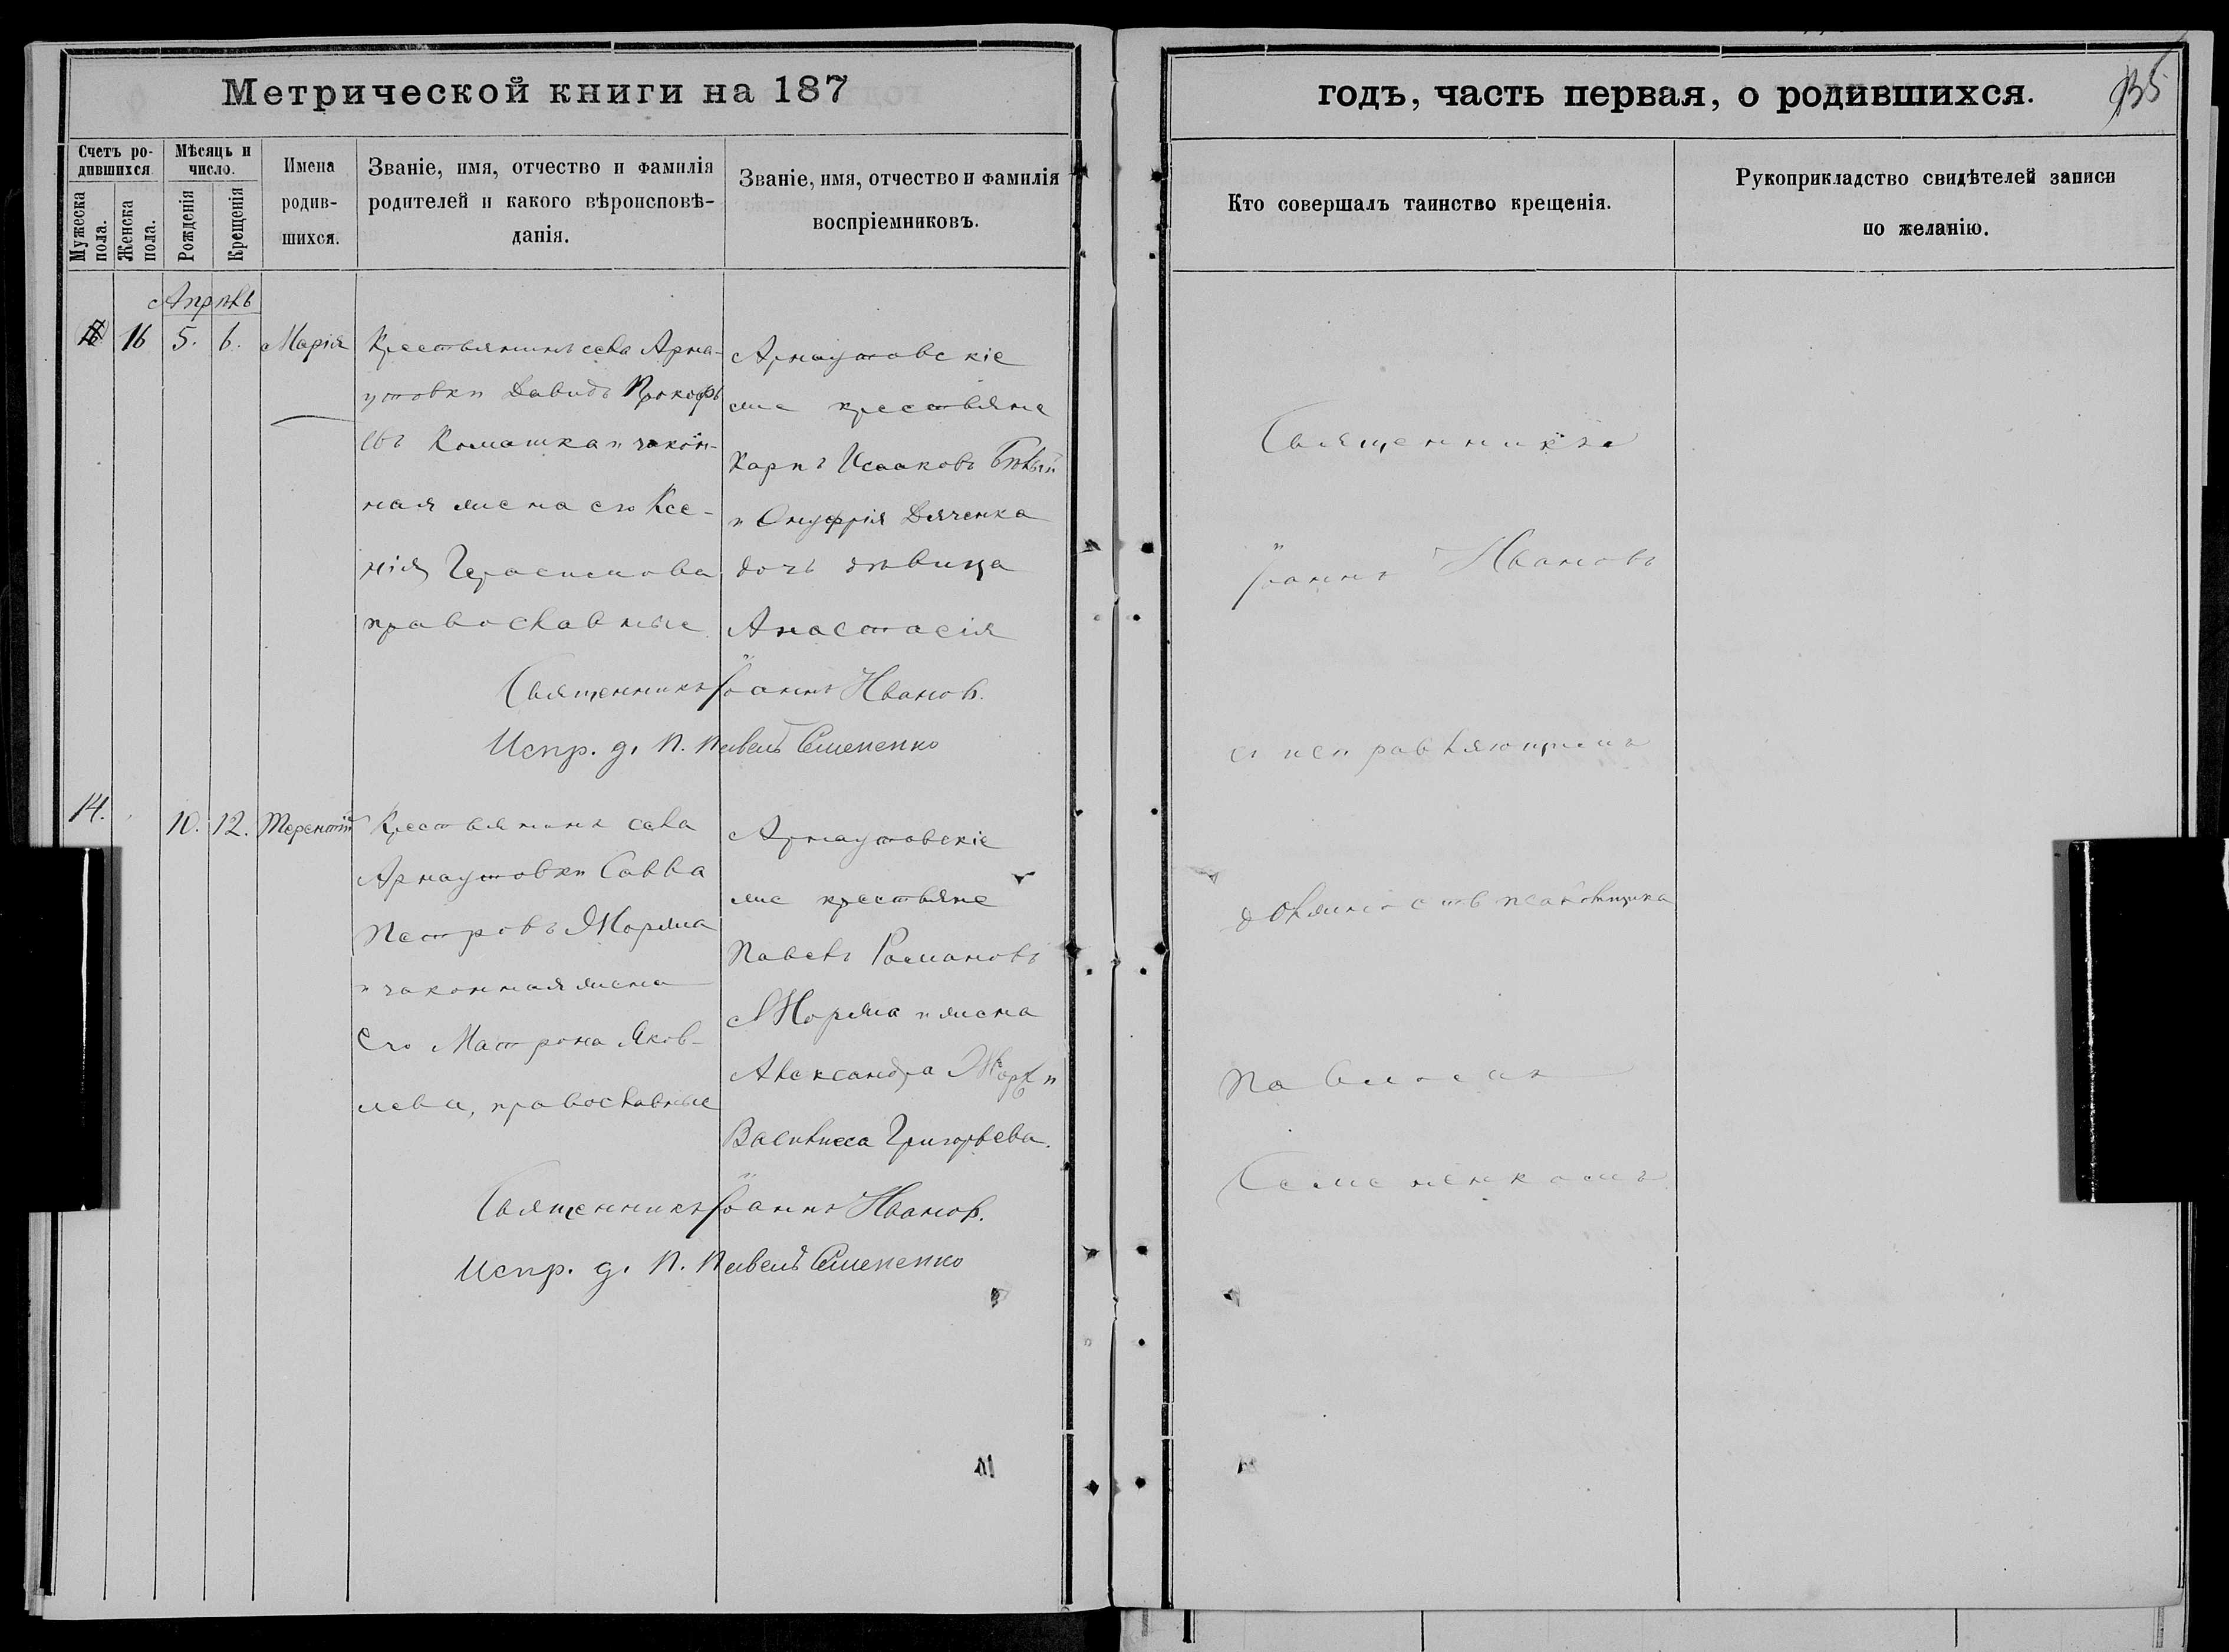 Метрической книги на 187
Счетъ ро-
дившихся
Мужеска пола.
Женска пола.
Мѣсяцъ и
число.
Рожденія
Крещенія
Имена
родив-
шихся.
Званіе, имя, отчество и фамилія
родителей и какого вѣроисповѣ-
данія.
Званіе, имя, отчество и фамилія
воспріемниковъ.
Апрѣль
16 5. 6. Марія
Крестьянинъ села Арна-
утовки Давидъ Прокофь
евъ Комашка и закон-
ная жена его Ксе-
нія Герасимова
православные
Арнаутовскіе
же крестьяне
Карпъ Исааковъ Бѣлый
и Онуфрія Дяченка
дочь дѣвица
Анастасія
Священникъ Іоаннъ Ивановъ.
Испр. д. П. Павелъ Семененко
14. 10. 12. Терентій
Крестьянинъ села
Арнаутовки Савва
Петровъ Жоржа
и законная жена
Его Матрона Яков-
лева, православные
Арнаутовскіе
же крестьяне
Павелъ Романовъ
Жоржа и жена
Александра
Василисса Григорьева.
Священникъ Іоаннъ Ивановъ.
Испр. д. П. Павелъ Семененко
годъ, часть первая, о родившихся.
135
Кто совершалъ таинство крещенія.
Рукоприкладство свидѣтелей записи
по желанію.
Священникъ
Іоаннъ Ивановъ
съ исправляющимъ
должность псаломщика
Павломъ
Семененкомъ